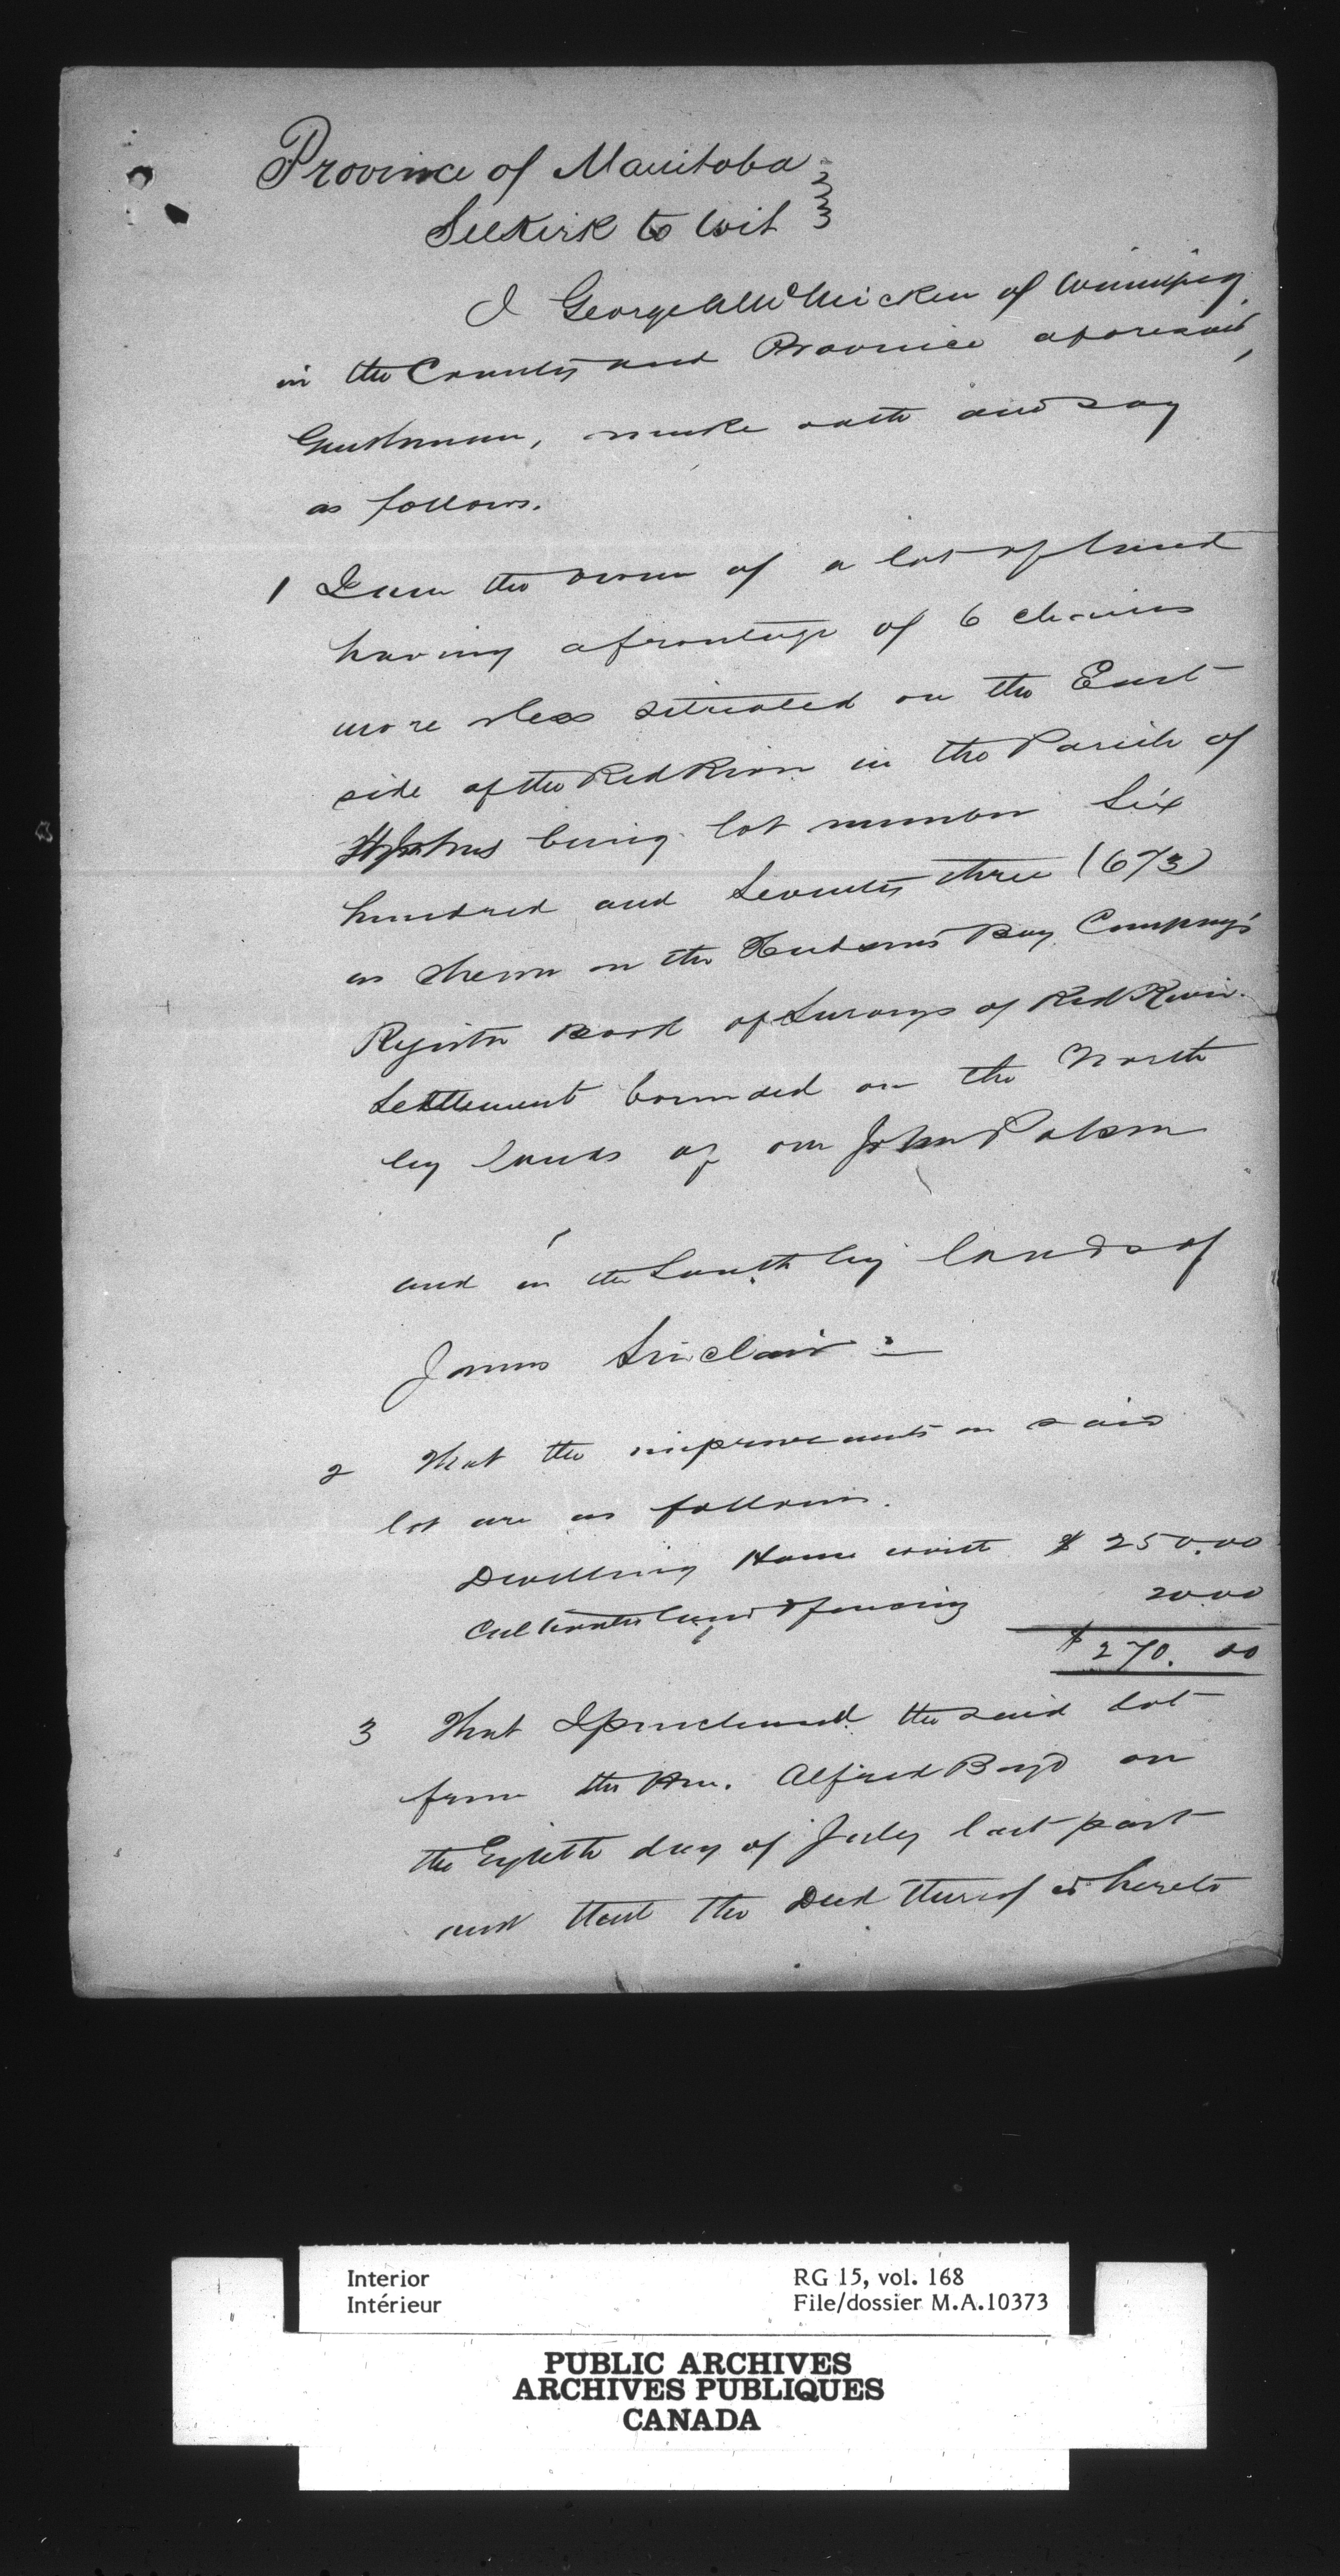 Province of Manitoba
Selkirk to Wit
I George McMicken of Winnipeg
in the County and Province aforesaid,
Gentleman, make oath and say
as follows.
1 I am the owner of a lot of land
having a frontage of 6 chains
more or less situated on the East
side of the Red River in the Parish of
St Johns being lot number Six
hundred and Seventy three (673)
as shewn on the Hudsons Bay Company's
Register Book of Surveys of Red River
Settlement bounded on the North
by lands of one John Polson
and on the South by lands of
James Sinclair
2 That the improvements on said
lot are as follows.
Dwelling House worth $ 250.00
Cultivated land & fencing 20.00
$ 270.00
3 That I purchased the said lot
from the Hon. Alfred Boyd on
the Eighth day of July last past
and that the Deed thereof is hereto
Interior
Intérieur
RG 15, vol. 168
File/dossier M.A.10373
PUBLIC ARCHIVES
ARCHIVES PUBLIQUES
CANADA